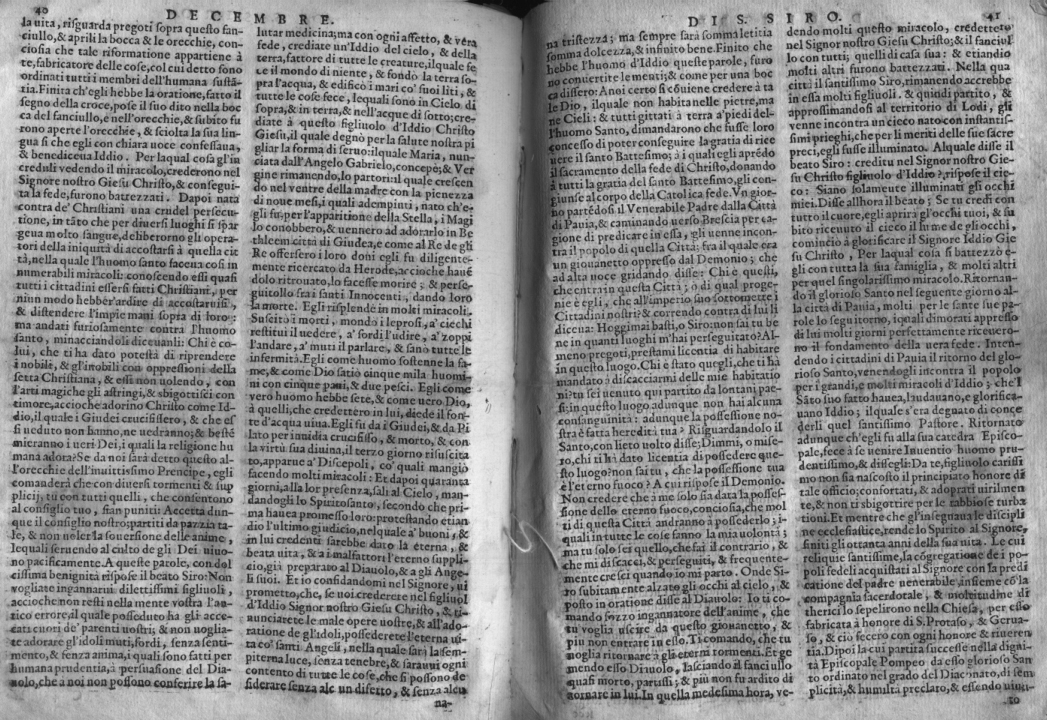 40
DECEMBRE.
la uita, risguarda pregoti sopra questo fan-
ciullo, & aprili la bocca & le orecchie, con-
ciosia che tale riformatione appartiene à
te, fabricatore delle cose, col cui detto sono
ordinati tutti i membri dell'humana sustã-
tia. Finita ch'egli hebbe la oratione, fatto il
segno della croce, pose il suo dito nella boc
ca del fanciullo, e nell'orecchie, & subito fu
rono aperte l'orecchie, & sciolta la sua lin-
gua sì che egli con chiara uoce confessaua,
& benediceua Iddio. Per laqual cosa gl'in
creduli vedendo il miracolo, crederono nel
Signore nostro Giesu Christo, & consegui-
ta la fede, furono battezzati. Dapoi nata
contra de' Christiani una crudel persecu-
tione, in tãto che per diuersi luoghi si spar
geua molto sangue, deliberorno gli opera-
tori della iniquità di accostarsi à quella cit
tà, nella quale l'huomo santo faceua cosi in
numerabili miracoli: conoscendo essi quasi
tutti i cittadini essersi fatti Christiani, per
niun modo hebber'ardire di accostaruisi,
& distendere l'impie mani sopra di loro:
ma andati furiosamente contra l'huomo
santo, minacciandoli diceuanli: Chi è co-
lui, che ti ha dato potestà di riprendere
i nobili, & gl'ignobili con oppressioni della
setta Christiana, & essi non uolendo, con
l'arti magiche gli astringi, & sbigottisci con
timore, acciochè adorino Christo come Id-
dio, il quale i Giudei crucifissero, & che es
si ueduto non hanno, ne uedranno; & beste
mieranno i ueri Dei, i quali la religione hu
mana adora? Se da noi sarà detto questo al-
l'orecchie dell'inuittissimo Prencipe, egli
comanderà che con diuersi tormenti & sup
plicij, tù con tutti quelli, che consentono
al consiglio tuo, sian puniti: Accetta dun-
que il consiglio nostro; partiti da pazzia ta-
le, & non uoler la souersione delle anime,
lequali seruendo al culto de gli Dei uiuo-
no pacificamente. A queste parole, con dol
cissima benignità rispose il beato Siro: Non
vogliate ingannarui dilettissimi figliuoli,
accioche non resti nella mente vostra l'an-
tico errore, il quale posseduto ha gli acce-
cati cuori de' parenti uostri; & non uoglia-
te adorare gl'idoli muti, sordi, senza senti-
mento, & senza anima, i quali sono fatti per
humana prudentia, à persuasione del Dia-
uolo, che a noi non possono conferire la sa-
lutar medicina; ma con ogni affetto, & vera
fede, crediate un'Iddio del cielo, & della
terra, fattore di tutte le creature, ilquale fe
ce il mondo di niente, & fondò la terra so-
pra l'acqua, & edificò i mari co' suoi liti, &
tutte le cose fece, lequali sono in Cielo di
sopra, & in terra, & nell'acque di sotto; cre-
diate à questo figliuolo d'Iddio Christo
Giesu, il quale degnò per la salute nostra pi
gliar la forma di seruo: ilquale Maria, nun-
ciata dall'Angelo Gabriele, concepè; & Ver
gine rimanendo, lo partorì: al quale crescen
do nel ventre della madre con la pienezza
di noue mesi, i quali adempiuti, nato ch'e-
gli fu; per l'apparitione della Stella, i Magi
lo conobbero, & uennero ad adorarlo in Be
thleem città di Giudea, e come al Re de gli
Re offersero i loro doni egli fu diligente-
mente ricercato da Herode, accioche hauē
dolo ritrouato, lo facesse morire; & perse-
guitollo fra i santi Innocenti, dando loro
la morte. Egli risplende in molti miracoli.
Suscitò i morti, mondò i leprosi, a' ciechi
restituì il uedere, a' sordi l'udire, a' zoppi
l'andare, a' muti il parlare, & sanò tutte le
infermità. Egli come huomo sostenne la fa-
me, & come Dio satiò cinque mila huomi-
ni con cinque pani, & due pesci. Egli come
vero huomo hebbe sete, & come uero Dio,
à quelli, che credettero in lui, diede il fon-
te d'acqua uiua. Egli fu da i Giudei, & da Pi
lato per inuidia crucifisso, & morto, & con
la virtù sua diuina, il terzo giorno risuscita
to, apparue a' Discepoli, co' quali mangiò
facendo molti miracoli: Et dapoi quaranta
giorni, alla lor presenza, salì al Cielo, man-
dandogli lo Spirito santo, secondo che pri-
ma hauea promesso loro: protestando etian
dio l'ultimo giudicio, nel quale a' buoni, &
in lui credenti sarebbe dato la eterna, &
beata uita, & a i malfattori l'eterno suppli-
cio, già preparato al Diauolo, & a gli Ange-
li suoi. Et io confidandomi nel Signore, ui
prometto, che, se uoi crederete nel figliuol
d'Iddio Signor nostro Giesu Christo, & ri-
nunciarete le male opere uostre, & all'ado-
ratione de gl'idoli, possederete l'eterna ui-
ta co' santi Angeli, nella quale sarà la sem-
piterna luce, senza tenebre, & sarauui ogni
contento di tutte le cose, che si possono de-
siderare senza alcun difetto, & senza alcu-
na-
DI S. SIRO.
41
na tristezza; ma sempre sarà somma letitia
somma dolcezza, & infinito bene. Finito che
hebbe l'huomo d'Iddio queste parole, furo
no conuertite le menti; & come per una boc
ca dissero: A noi certo si cõuiene credere à ta
le Dio, ilquale non habita nelle pietre, ma
ne Cieli: & tutti gittati à terra a'piedi del-
l'huomo Santo, dimandarono che fusse loro
concesso di poter conseguire la gratia di rice
uere il santo Battesimo; à i quali egli aprēdo
il sacramento della fede di Christo, donando
à tutti la gratia del santo Battesimo, gli con-
giunse al corpo della Catolica fede. Vn gior-
no partēdosi il Venerabile Padre dalla Città
di Pauia, & caminando uerso Brescia per ca-
gione di predicare in essa, gli uenne incon-
tra il popolo di quella Città: fra il quale era
un giouanetto oppresso dal Demonio; che
ad alta uoce gridando disse: Chi è questi,
che entra in questa Città; o di qual proge-
nie è egli, che all'imperio suo sottomette i
Cittadini nostri? & correndo contra di lui li
diceua: Hoggimai basti, o Siro: non sai tu be
ne in quanti luoghi m'hai perseguitato? Al-
meno pregoti, prestami licentia di habitare
in questo luogo. Chi è stato quegli, che ti hà
mandato à discacciarmi delle mie habitatio
ni? tu sei uenuto qui partito da lontani pae-
si; in questo luogo adunque non hai alcuna
consanguinità: adunque la possessione no-
stra è fatta heredità tua? Risguardandolo il
Santo, con lieto uolto disse; Dimmi, o mise-
ro, chi ti hà dato licentia di possedere que-
sto luogo? non sai tu, che la possessione tua
è l'eterno fuoco? A cui rispose il Demonio.
Non credere che à me solo sia data la posses-
sione dello eterno fuoco, conciosia, che mol
ti di questa Città andranno à possederlo; i
quali in tutte le cose fanno la mia uolontà;
ma tu solo sei quello, che fai il contrario, &
che mi discacci, & perseguiti, & frequente-
mente cresci quando io mi parto. Onde Si-
ro subitamente alzate gli occhi al cielo, &
posto in oratione disse al Diauolo: Io ti co-
mando sozzo ingannatore dell'anime, che
tu voglia uscire da questo giouanetto, &
più non entrare in esso. Ti comando, che tu
uoglia ritornare à gli eterni tormenti. Et ge
mendo esso Diauolo, lasciando il fanciullo
quasi morto, partissi; & più non fu ardito di
tornare in lui. In quella medesima hora, ve-
dendo molti questo miracolo, credettero
nel Signor nostro Giesu Christo; & il fanciul
lo con tutti; quelli di casa sua: & etiandio
molti altri furono battezzati. Nella qua
città il santissimo Siro, rimanendo accrebbe
in essa molti figliuoli. & quindi partito, &
approssimandosi al territorio di Lodi, gli
venne incontra un cieco nato con instantis-
simi prieghi, che per li meriti delle sue sacre
preci, egli fusse illuminato. Alquale disse il
beato Siro: credi tu nel Signor nostro Gie-
su Christo figliuolo d'Iddio?, rispose il cie-
co: Siano solamente illuminati gli occhi
miei. Disse allhora il beato; Se tu credi con
tutto il cuore, egli aprirà gl'occhi tuoi, & su
bito riceuuto il cieco il lume de gli occhi,
cominciò à glorificare il Signore Iddio Gie
su Christo, Per laqual cosa si battezzò e-
gli con tutta la sua famiglia, & molti altri
per quel singolarissimo miracolo. Ritornan-
do il glorioso Santo nel seguente giorno al-
la città di Pauia, molti per le sante sue pa-
role lo seguitorno, iquali dimorati appresso
di lui molti giorni perfettamente riceuero-
no il fondamento della uera fede. Inten-
dendo i cittadini di Pauia il ritorno del glo-
rioso Santo, venendogli incontra il popolo
per i grandi, e molti miracoli d'Iddio; che'l
Sãto suo fatto hauea, laudauano, e glorifica-
uano Iddio; ilquale s'era degnato di conce
derli quel santissimo Pastore. Ritornato
adunque ch'egli fu alla sua catedra Episco-
pale, fece à se uenire Inuentio huomo pru-
dentissimo, & dissegli: Da te, figliuolo carissi
mo non sia nascosto il principiato honore di
tale officio; confortati, & adoprati uirilmen
te, & non ti sbigottire per le rabbiose turba
tioni. Et mentre che gl'insegnaua le discipli
ne ecclesiastice, rende lo Spirito al Signore,
finiti gli ottanta anni della sua uita. Le cui
reliquie santissime, la cõgregatione de i po-
poli fedeli acquistati al Signore con la predi
catione del padre uenerabile, insieme cõ la
compagnia sacerdotale, & moltitudine di
cherici lo sepelirono nella Chiesa, per esso
fabricata à honore di S. Protaso, & Gerua-
so, & ciò fecero con ogni honore & riueren
tia. Dipoi la cui partita successe nella digni-
tà Episcopale Pompeo da esso glorioso San
to ordinato nel grado del Diaconato, di sem
plicità, & humiltà preclato, & essendo uiuu-
to